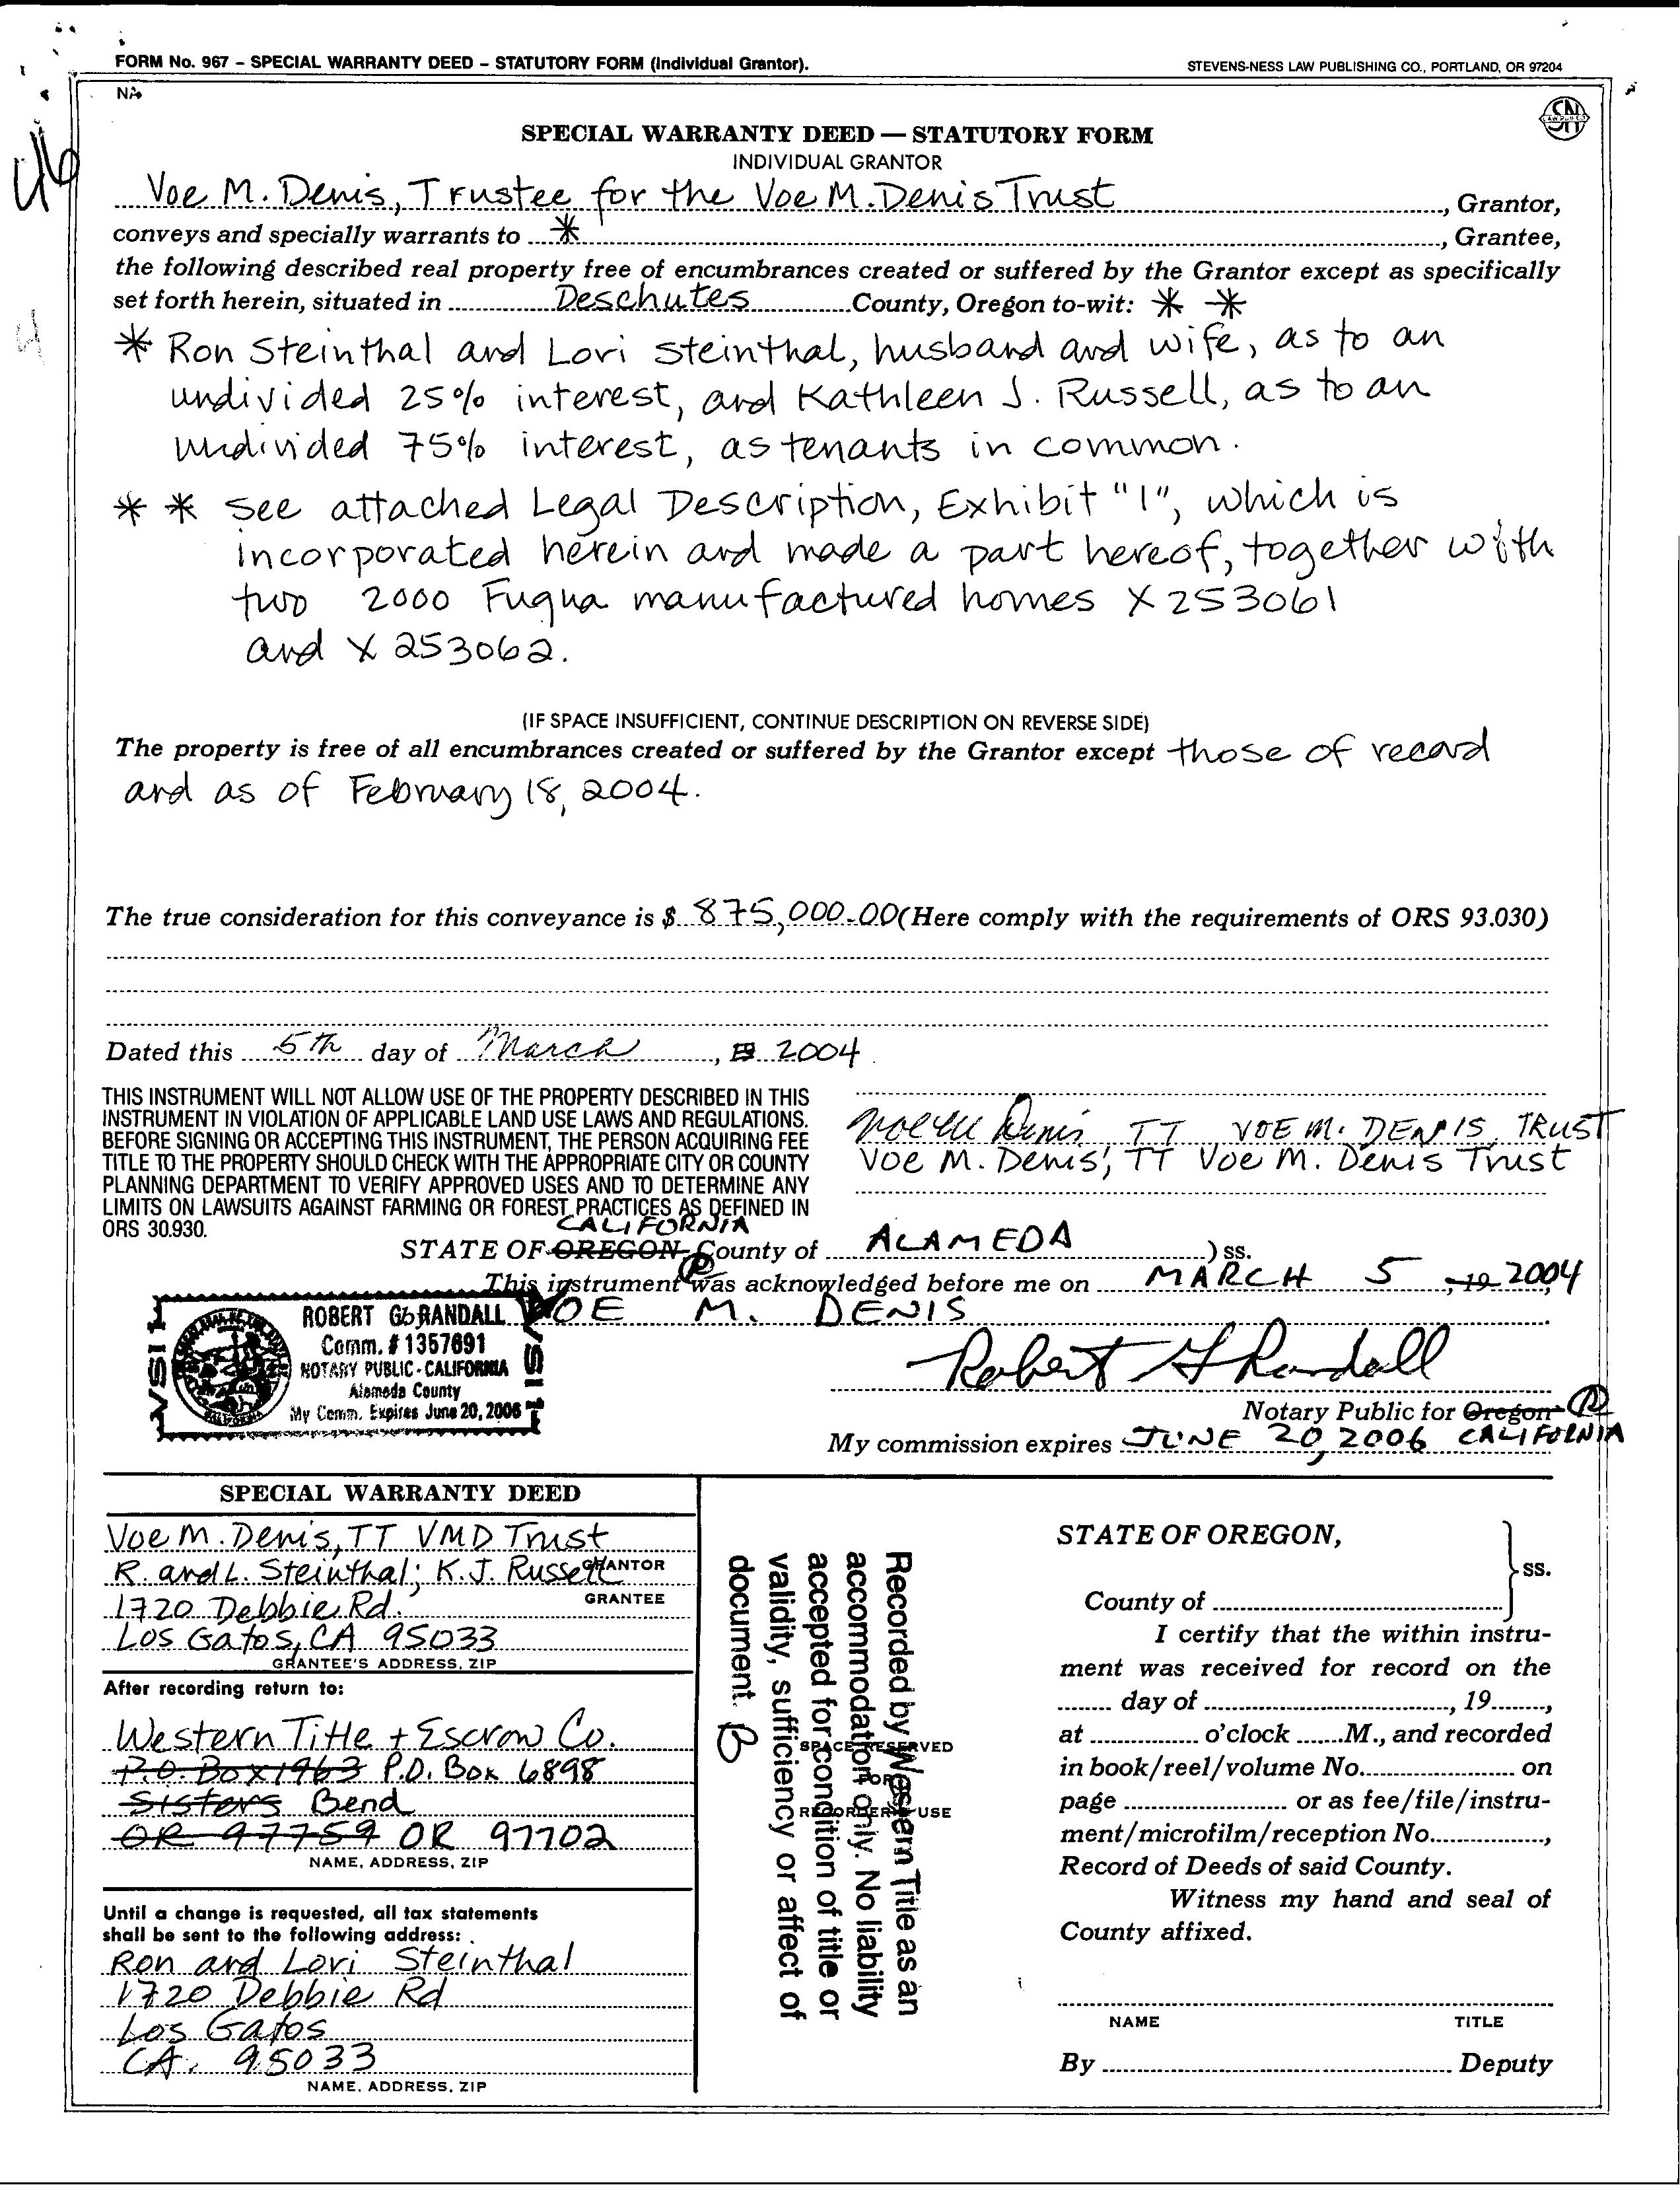 FORM No. 967 – SPECIAL WARRANTY DEED – STATUTORY FORM (Individual Grantor).
STEVENS-NESS LAW PUBLISHING CO., PORTLAND, OR 97204
NA
SN
SPECIAL WARRANTY DEED — STATUTORY FORM
INDIVIDUAL GRANTOR
Voe M. Denis, Trustee for the Voe M. Denis Trust, Grantor,
conveys and specially warrants to * , Grantee,
the following described real property free of encumbrances created or suffered by the Grantor except as specifically
set forth herein, situated in Deschutes County, Oregon to-wit: * *
* Ron Steinthal and Lori Steinthal, husband and wife, as to an
undivided 25% interest, and Kathleen J. Russell, as to an
undivided 75% interest, as tenants in common.
* * See attached Legal Description, Exhibit "1", which is
incorporated herein and made a part hereof, together with
two 2000 Fuqua manufactured homes X253061
and X253062.
(IF SPACE INSUFFICIENT, CONTINUE DESCRIPTION ON REVERSE SIDE)
The property is free of all encumbrances created or suffered by the Grantor except those of record
and as of February 18, 2004.
The true consideration for this conveyance is $ 875,000.00 (Here comply with the requirements of ORS 93.030)
Dated this 5th day of March, 19 2004.
THIS INSTRUMENT WILL NOT ALLOW USE OF THE PROPERTY DESCRIBED IN THIS
INSTRUMENT IN VIOLATION OF APPLICABLE LAND USE LAWS AND REGULATIONS.
BEFORE SIGNING OR ACCEPTING THIS INSTRUMENT, THE PERSON ACQUIRING FEE
TITLE TO THE PROPERTY SHOULD CHECK WITH THE APPROPRIATE CITY OR COUNTY
PLANNING DEPARTMENT TO VERIFY APPROVED USES AND TO DETERMINE ANY
LIMITS ON LAWSUITS AGAINST FARMING OR FOREST PRACTICES AS DEFINED IN
ORS 30.930.
Voe M Denis, TT VOE M. DENIS, TRUST
Voe M. Denis, TT Voe M. Denis Trust
CALIFORNIA
STATE OF OREGON, County of ALAMEDA ) ss.
This instrument was acknowledged before me on MARCH 5, 19 2004,
VOE M. DENIS
ROBERT G. RANDALL
Comm. # 1357691
NOTARY PUBLIC - CALIFORNIA
Alameda County
My Comm. Expires June 20, 2006
Robert G Randall
Notary Public for Oregon
My commission expires JUNE 20, 2006 CALIFORNIA
SPECIAL WARRANTY DEED
Voe M. Denis, TT VMD Trust
GRANTOR
R. and L. Steinthal; K.J. Russell
GRANTEE
1720 Debbie Rd.
Los Gatos, CA 95033
GRANTEE'S ADDRESS, ZIP
After recording return to:
Western Title + Escrow Co.
P.O. Box 1963 P.O. Box 6898
Sisters Bend
OR 97759 OR 97702
NAME, ADDRESS, ZIP
Until a change is requested, all tax statements
shall be sent to the following address:
Ron and Lori Steinthal
1720 Debbie Rd
Los Gatos
CA. 95033
NAME, ADDRESS, ZIP
Recorded by Western Title as an
accommodation only. No liability
accepted for condition of title or
validity, sufficiency or affect of
document.
SPACE RESERVED
FOR
RECORDER'S USE
STATE OF OREGON,
ss.
County of
I certify that the within instru-
ment was received for record on the
day of , 19 ,
at o'clock M., and recorded
in book/reel/volume No. on
page or as fee/file/instru-
ment/microfilm/reception No. ,
Record of Deeds of said County.
Witness my hand and seal of
County affixed.
NAME TITLE
By Deputy